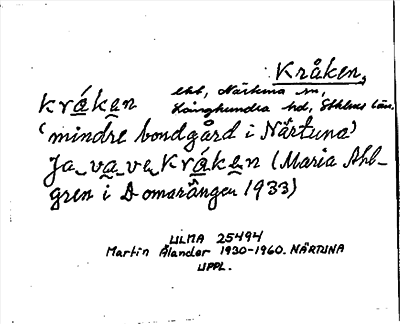 Kråken,
ehb, Närtuna sn,
kråken Långhundra hd, Sthlms län.
'mindre bondgård i Närtuna'
Ja va ve kråken (Maria Ahl-
gren i Domarängen 1933)
ULMA 25494
Martin Ålander 1930-1960. NÄRTUNA
UPPL.